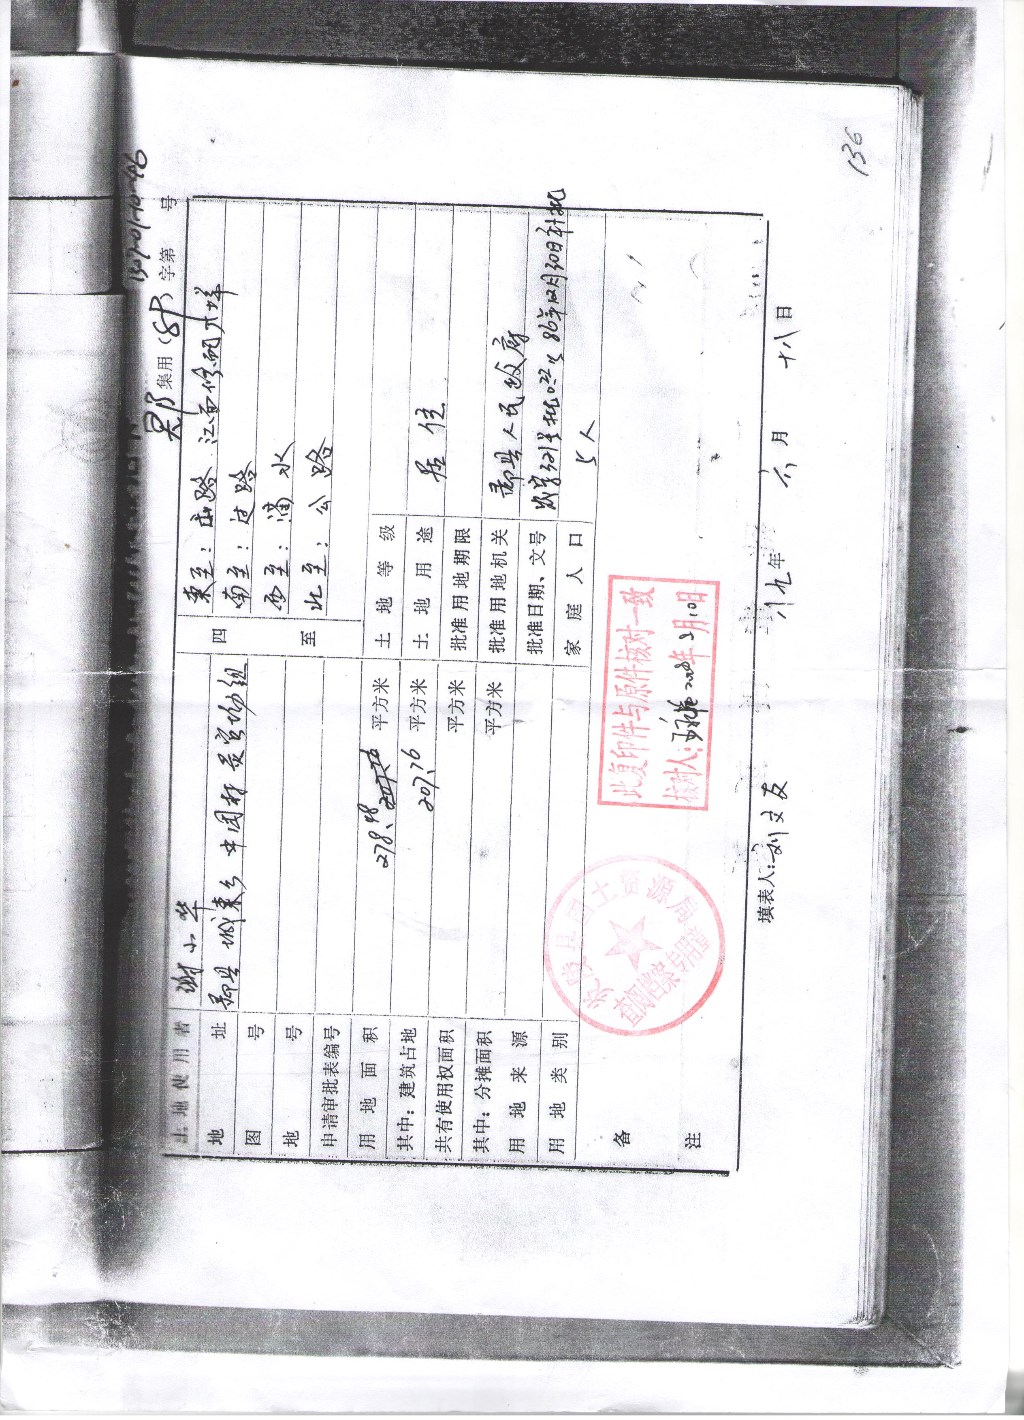 136
1307-01-10-46
集用( )字第 号
土地使用者 谢小华
四至
东至:出路
南至:过路
西至:滴水
北至:公路
地址 酃县城东乡中园村
图号
地号
申请审批表编号
用地面积 278.48 平方米
土地等级
其中:建筑占地 207.76 平方米
土地用途 居住
共有使用权面积 平方米
批准用地期限
其中:分摊面积 平方米
批准用地机关 酃县人民政府
用地来源
批准日期、文号 86年12月30日补批
用地类别
家庭人口 5人
备注
此复印件与原件核对一致
核对人: 2008年2月10日
炎陵县国土资源局
查阅档案专用章
填表人:刘文友 八九年 六月 十八日